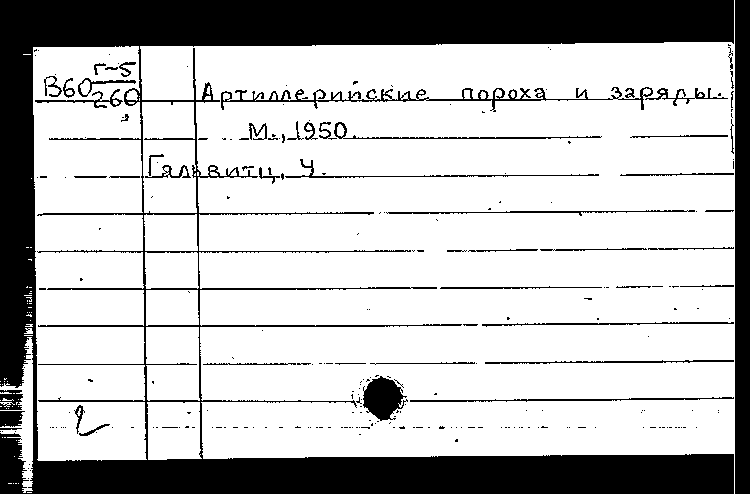 В60 г-5
260
Артиллерийские пороха и заряды.
М., 1950.
Гальвитц, У.
2